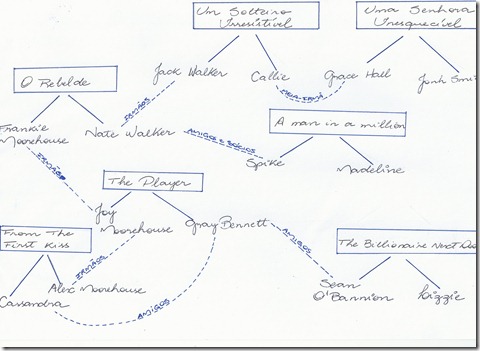 Um Solteiro
Irresistível
Uma Senhora
Inesquecível
Jack Walker
Callie
Grace Hall
Jonh Smi
O Rebelde
IRMÃOS
MEIA-IRMÃ
A man in a million
Frankie
Moorehouse
Nate Walker
AMIGOS E SÓCIOS
Spike
Madeline
IRMÃS
The Player
Joy
Moorehouse
Gray Bennett
From The
First Kiss
AMIGOS
The Billionaire Next Doo
IRMÃOS
Alex Moorehouse
Cassandra
AMIGOS
Sean
O'Bannion
Lizzie